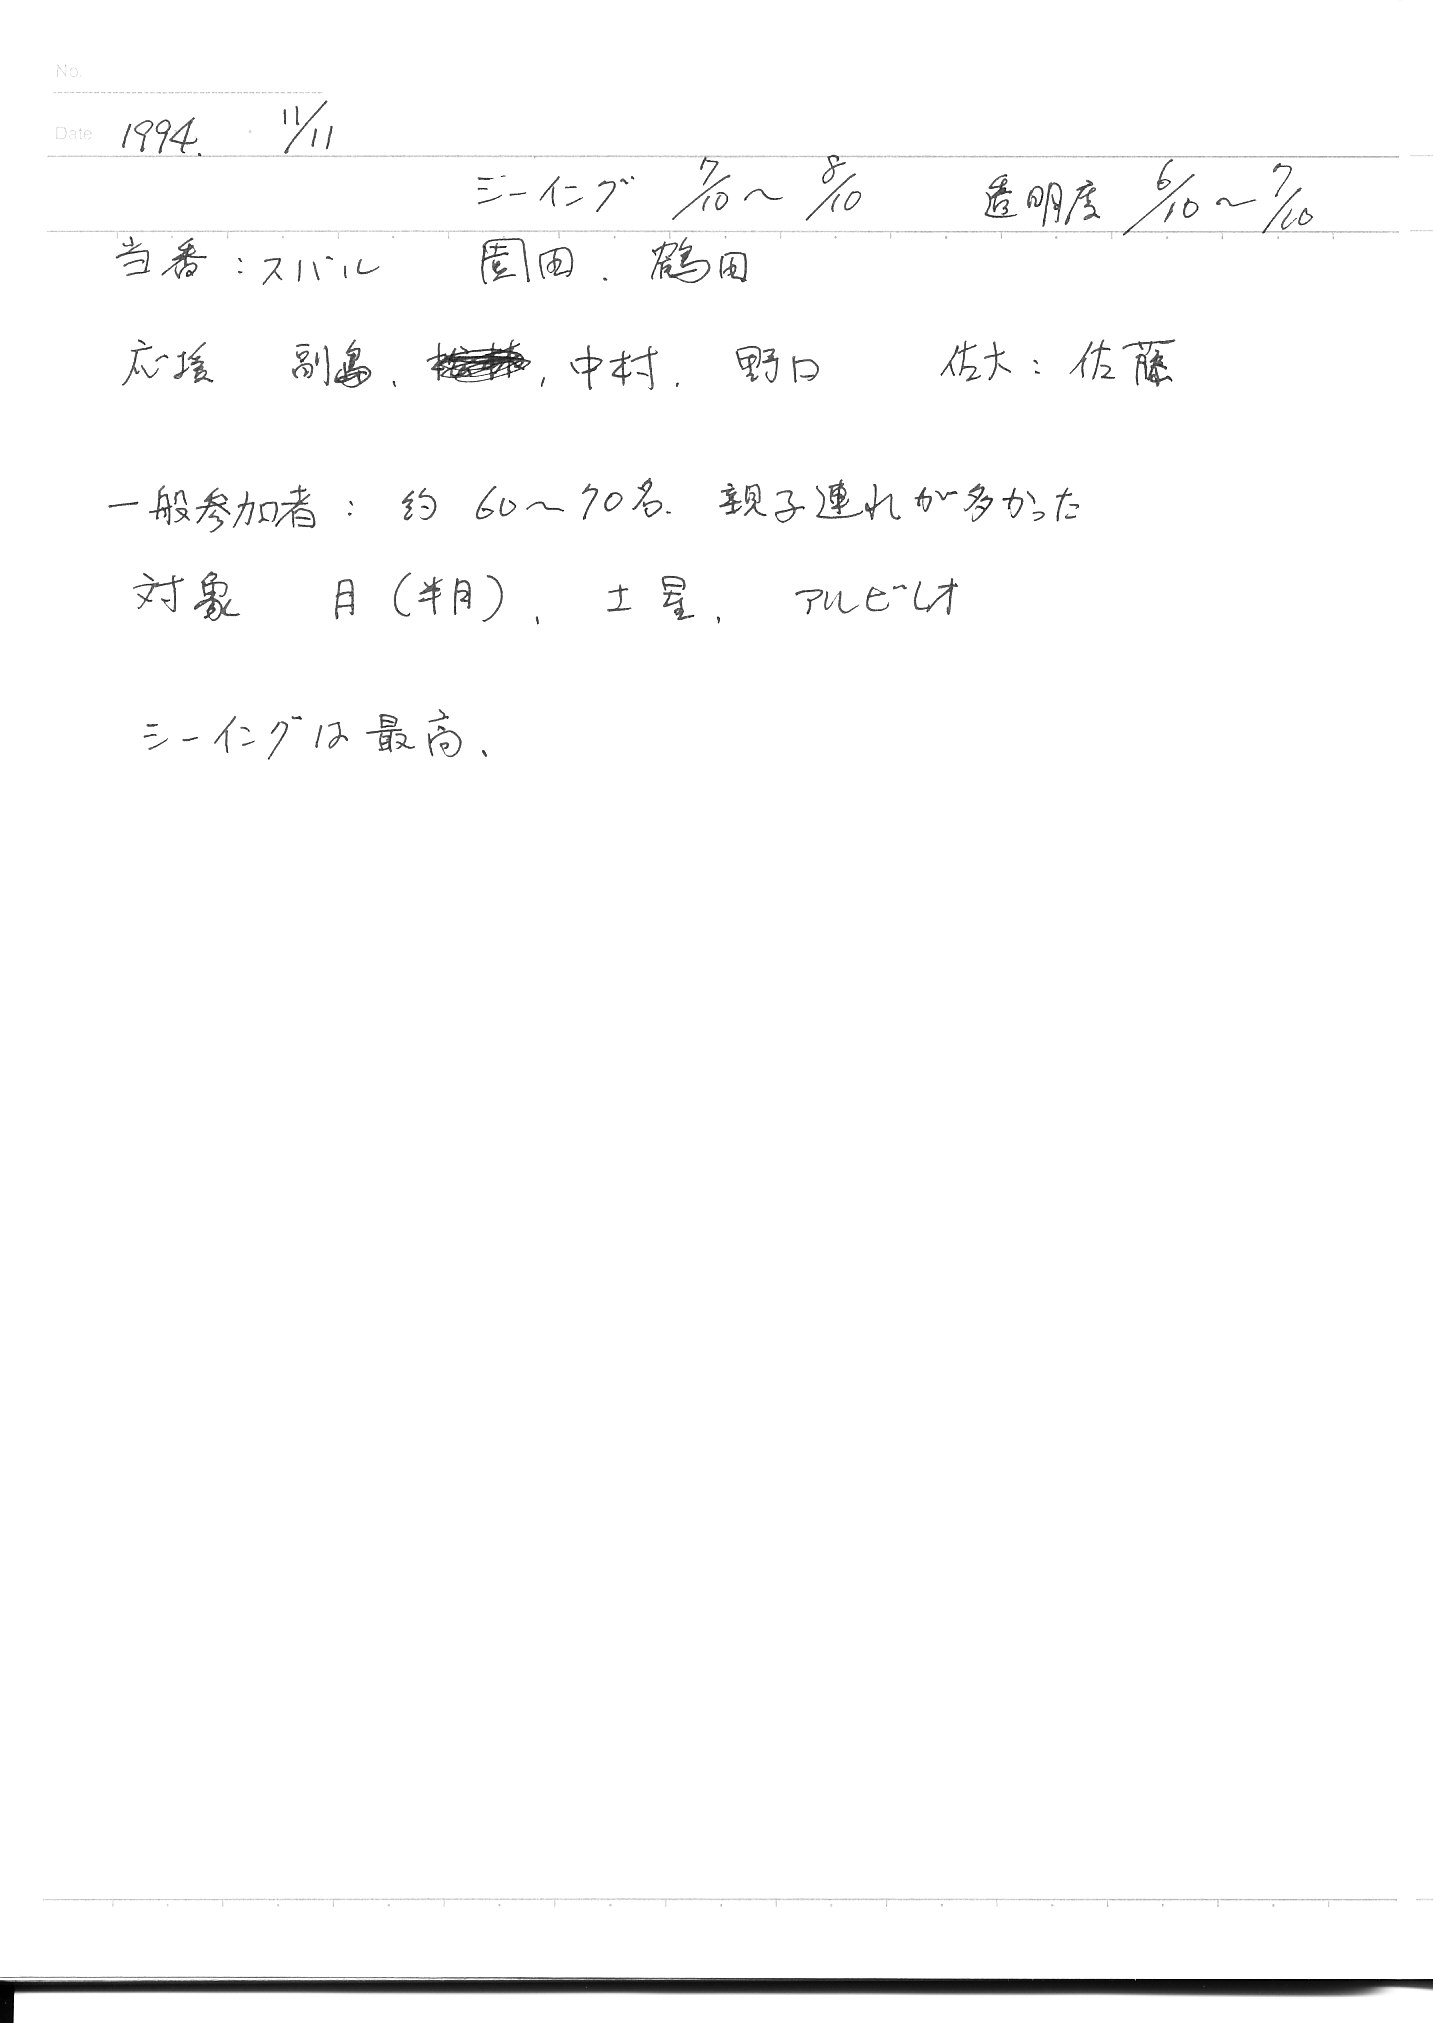 No.
Date 1994. 11/11
シーイング 7/10～8/10 透明度 6/10～7/10
当番：スバル 園田．鶴田
応援 副島、、中村．野口 佐大：佐藤
一般参加者：約60～70名．親子連れが多かった
対象 月（半月）、土星、アルビレオ
シーイングは最高、